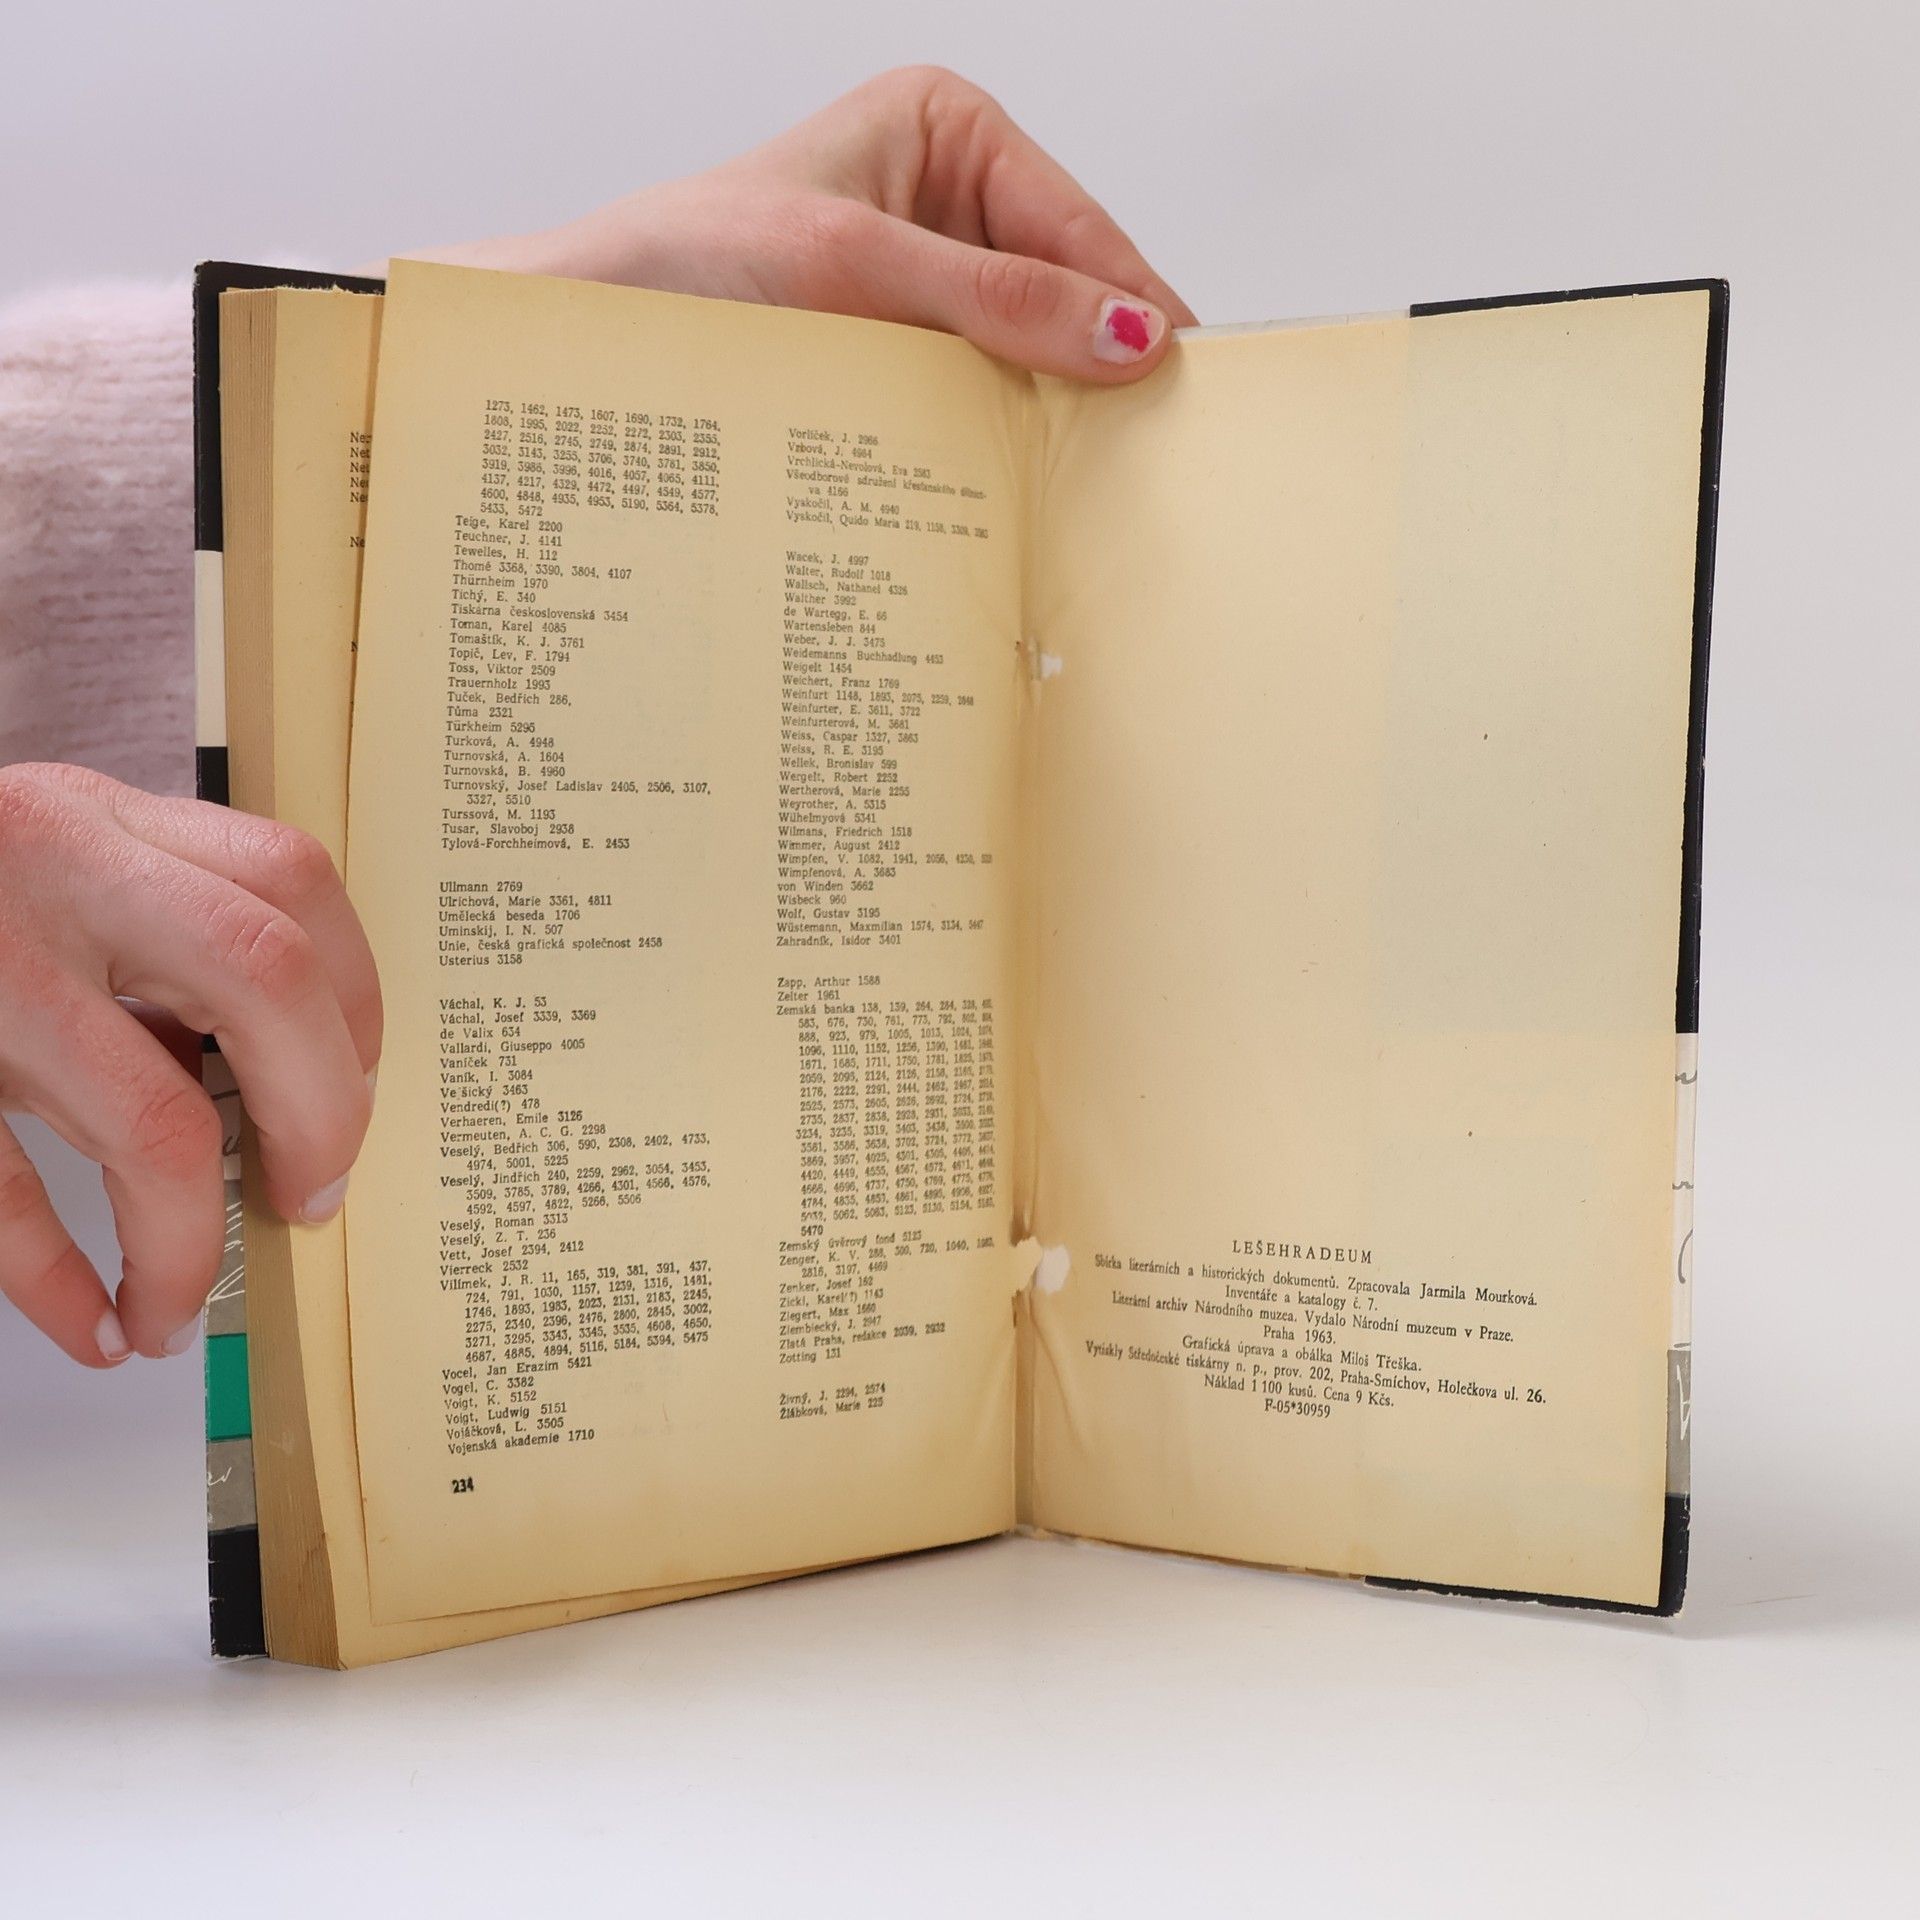 Net
Net
Ne
1273, 1462, 1473, 1607, 1690, 1732, 1764,
1808, 1995, 2022, 2252, 2272, 2303, 2355,
2427, 2516, 2745, 2749, 2874, 2891, 2912,
3032, 3143, 3255, 3706, 3740, 3781, 3850,
3919, 3986, 3996, 4016, 4057, 4065, 4111,
4137, 4217, 4329, 4472, 4497, 4549, 4577,
4600, 4848, 4935, 4953, 5190, 5364, 5378,
5433, 5472
Teige, Karel 2200
Teuchner, J. 4141
Tewelles, H. 112
Thomé 3368, 3390, 3804, 4107
Thürnheim 1970
Tichý, E. 340
Tiskárna československá 3454
Toman, Karel 4085
Tomaštík, K. J. 3761
Topič, Lev, F. 1794
Toss, Viktor 2509
Trauernholz 1993
Tuček, Bedřich 286,
Tůma 2321
Türkheim 5295
Turková, A. 4948
Turnovská, A. 1604
Turnovská, B. 4960
Turnovský, Josef Ladislav 2405, 2506, 3107,
3327, 5510
Turssová, M. 1193
Tusar, Slavoboj 2938
Tylová-Forchheimová, E. 2453
Ullmann 2769
Ulrichová, Marie 3361, 4811
Umělecká beseda 1706
Uminskij, I. N. 507
Unie, česká grafická společnost 2458
Usterius 3158
Váchal, K. J. 53
Váchal, Josef 3339, 3369
de Valix 634
Vallardi, Giuseppo 4005
Vaníček 731
Vaník, I. 3084
Ve šický 3463
Vendredi(?) 478
Verhaeren, Emile 3126
Vermeuten, A. C. G. 2298
Veselý, Bedřich 306, 590, 2308, 2402, 4733,
4974, 5001, 5225
Veselý, Jindřich 240, 2259, 2962, 3054, 3453,
3509, 3785, 3789, 4266, 4301, 4566, 4576,
4592, 4597, 4822, 5266, 5506
Veselý, Roman 3313
Veselý, Z. T. 236
Vett, Josef 2394, 2412
Vierreck 2532
Vilímek, J. R. 11, 165, 319, 381, 391, 437,
724, 791, 1030, 1157, 1239, 1316, 1481,
1746, 1893, 1983, 2023, 2131, 2183, 2245,
2275, 2340, 2396, 2476, 2800, 2845, 3002,
3271, 3295, 3343, 3345, 3535, 4608, 4650,
4687, 4885, 4894, 5116, 5184, 5394, 5475
Vocel, Jan Erazim 5421
Vogel, C. 3382
Voigt, K. 5152
Voigt, Ludwig 5151
Vojáčková, L. 3505
Vojenská akademie 1710
234
Vorlíček, J. 2966
Vrbová, J. 4984
Vrchlická-Nevolová, Eva 2583
Všeodborové sdružení křesťanského dělnict-
va 4166
Vyskočil, A. M. 4940
Vyskočil, Quido Maria 219, 1158, 3309,
Wacek, J. 4997
Walter, Rudolf 1018
Wallsch, Nathanel 4326
Walther 3992
de Wartegg, E. 66
Wartensleben 844
Weber, J. J. 3475
Weidemanns Buchhadlung 4453
Weigelt 1454
Weichert, Franz 1769
Weinfurt 1148, 1893, 2075, 2259, 2648
Weinfurter, E. 3611, 3722
Weinfurterová, M. 3681
Weiss, Caspar 1327, 3863
Weiss, R. E. 3195
Wellek, Bronislav 599
Wergelt, Robert 2252
Wertherová, Marie 2255
Weyrother, A. 5315
Wilhelmyová 5341
Wilmans, Friedrich 1518
Wimmer, August 2412
Wimpfen, V. 1082, 1941, 2056, 4230,
Wimpfenová, A. 3683
von Winden 3662
Wisbeck 960
Wolf, Gustav 3195
Wüstemann, Maxmilian 1574, 3134, 5447
Zahradník, Isidor 3401
Zapp, Arthur 1588
Zelter 1961
Zemská banka 138, 139, 264, 284, 328,
583, 676, 730, 761, 773, 792, 802,
888, 923, 979, 1005, 1013, 1024,
1096, 1110, 1152, 1256, 1390, 1481,
1671, 1685, 1711, 1750, 1781, 1825,
2059, 2095, 2124, 2126, 2158, 2165,
2176, 2222, 2291, 2444, 2462, 2467,
2525, 2573, 2605, 2626, 2692, 2724,
2735, 2837, 2838, 2928, 2931, 3033,
3234, 3235, 3319, 3403, 3438,
3581, 3586, 3638, 3702, 3724, 3772,
3869, 3957, 4025, 4301, 4305, 4405,
4420, 4449, 4555, 4567, 4572, 4611,
4666, 4696, 4737, 4750, 4769, 4775,
4784, 4835, 4853, 4861, 4895, 4906,
5032, 5062, 5063, 5123, 5130, 5154,
5470
Zemský úvěrový fond 5123
Zenger, K. V. 288, 300, 720, 1040,
2816, 3197, 4469
Zenker, Josef 162
Zickl, Karel(?) 1143
Ziegert, Max 1660
Ziembiecký, J. 2947
Zlatá Praha, redakce 2039, 2932
Zotting 131
Živný, J. 2294, 2574
Žlábková, Marie 225
LEŠEHRADEUM
Sbírka literárních a historických dokumentů. Zpracovala Jarmila Mourková.
Inventáře a katalogy č. 7.
Literární archiv Národního muzea. Vydalo Národní muzeum v Praze.
Praha 1963.
Grafická úprava a obálka Miloš Třeška.
Vytiskly Středočeské tiskárny n. p., prov. 202, Praha-Smíchov, Holečkova ul. 26.
Náklad 1 100 kusů. Cena 9 Kčs.
F-05*30959